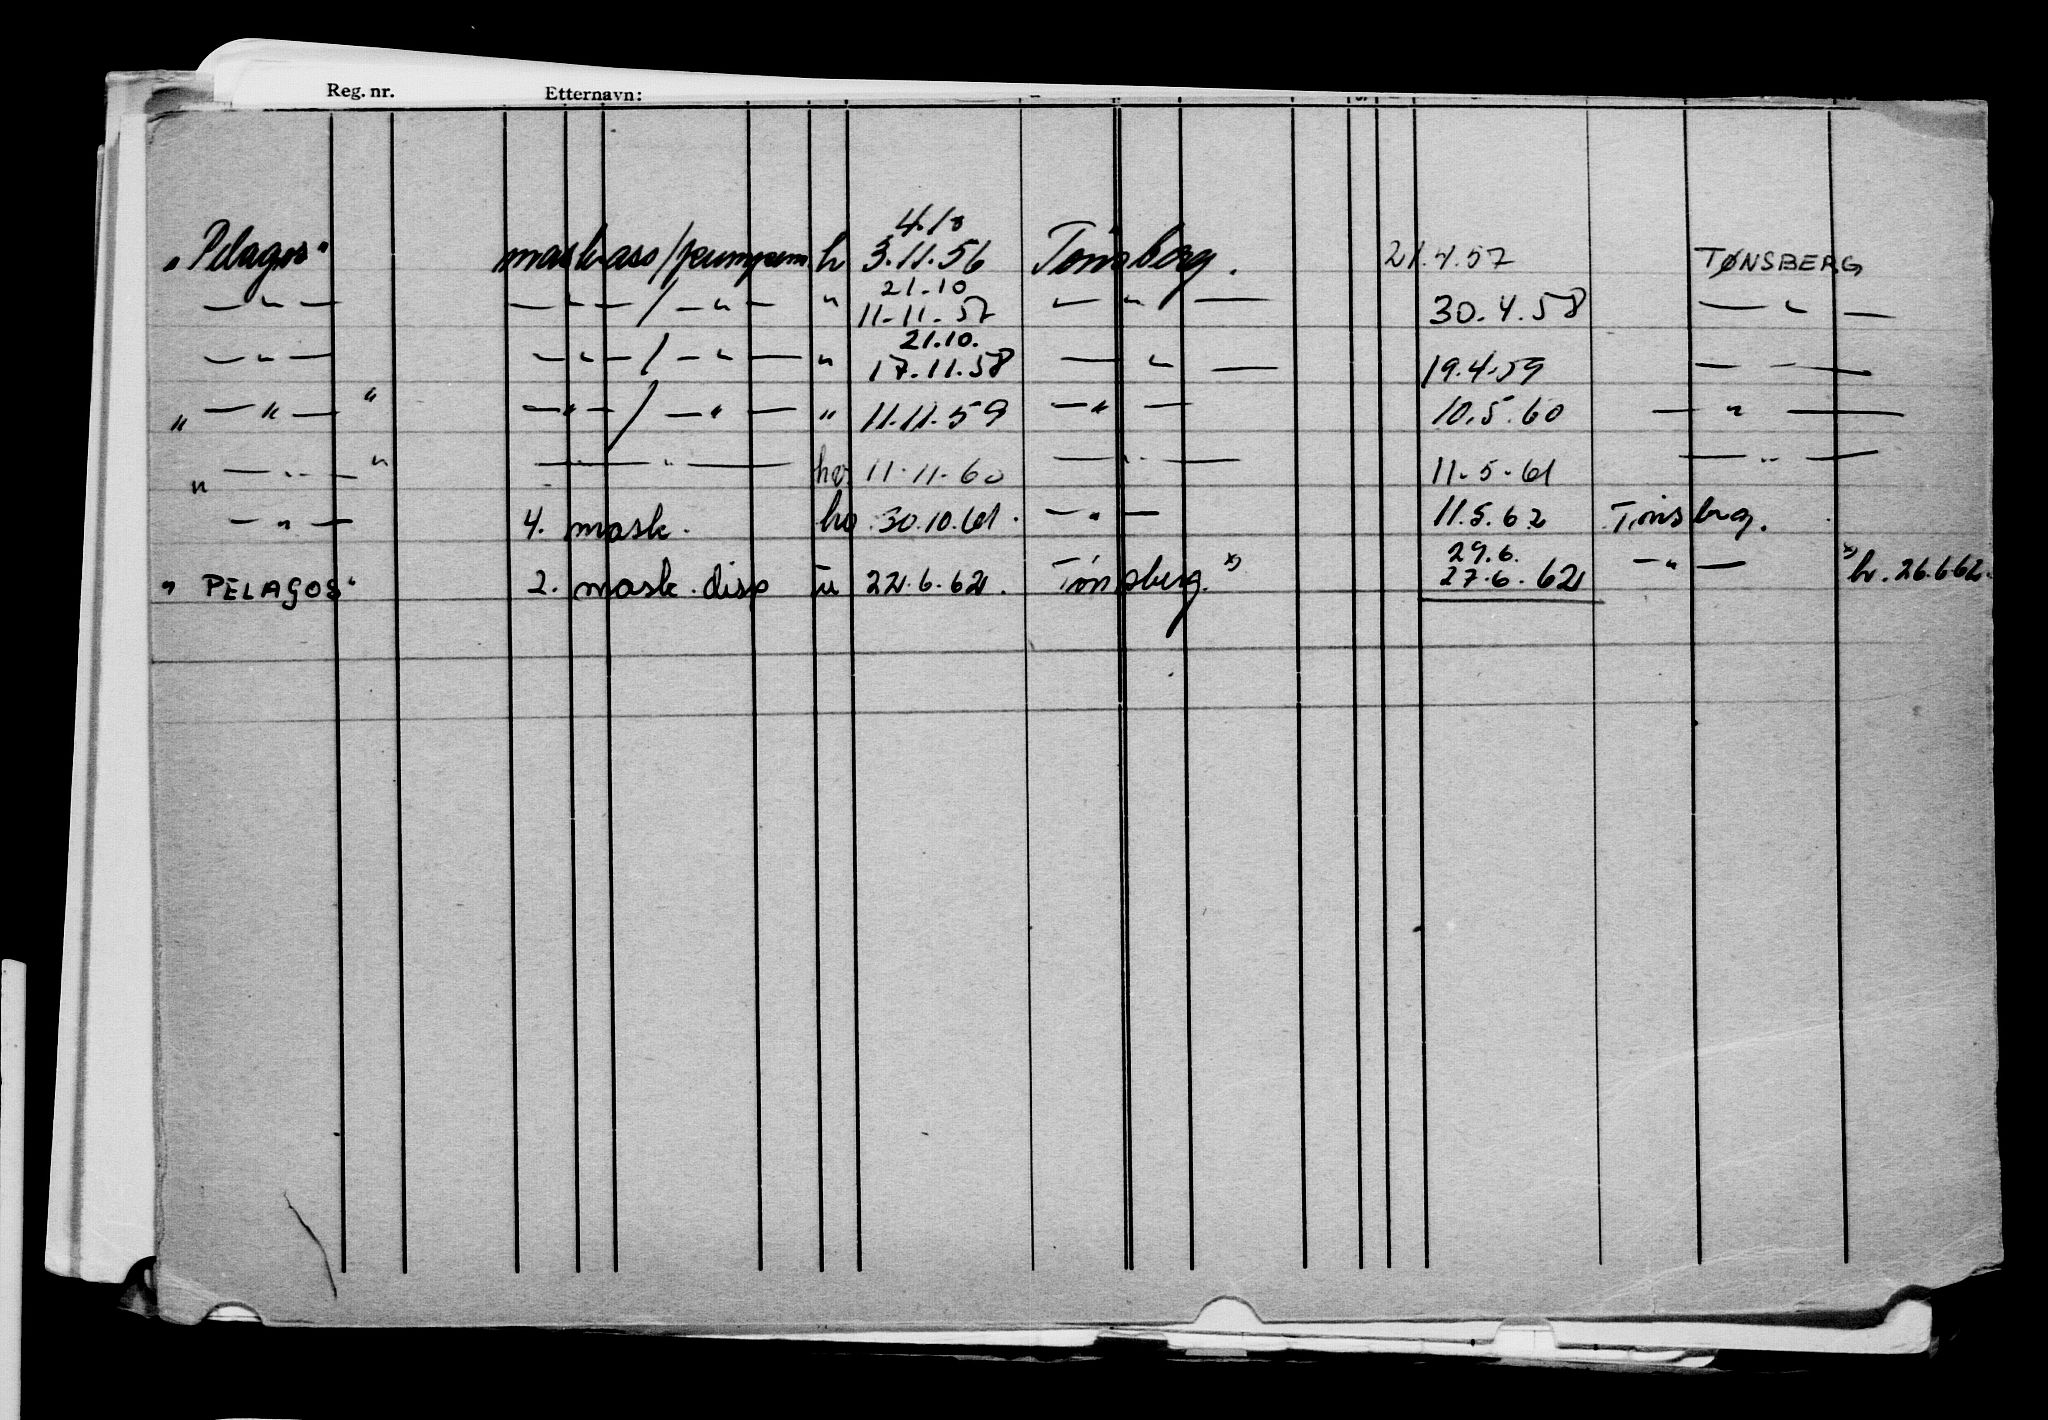 Reg. nr. Etternavn:
4.10
„Pelagos" mask.ass/pumpem. h 3.11.56 Tønsberg. 21.4.57 TØNSBERG
21.10
— " — — " — / — " — " 11.11.57 — " — 30.4.58 — " —
21.10.
— " — — " — / — " — " 17.11.58 — " — 19.4.59 — —
„ — " — " — " — / — " — " 11.11.59 — " — 10.5.60 — " —
„ — " — " — " — hv 11.11.60 — " — 11.5.61 — " —
— " — 4. mask. hv 30.10.61. — " — 11.5.62 Tønsbrg.
29.6.
„ PELAGOS" 2. mask. disp u 22.6.62. Tønsberg. x) 27.6.62 — " — x) hv. 26.6.62.